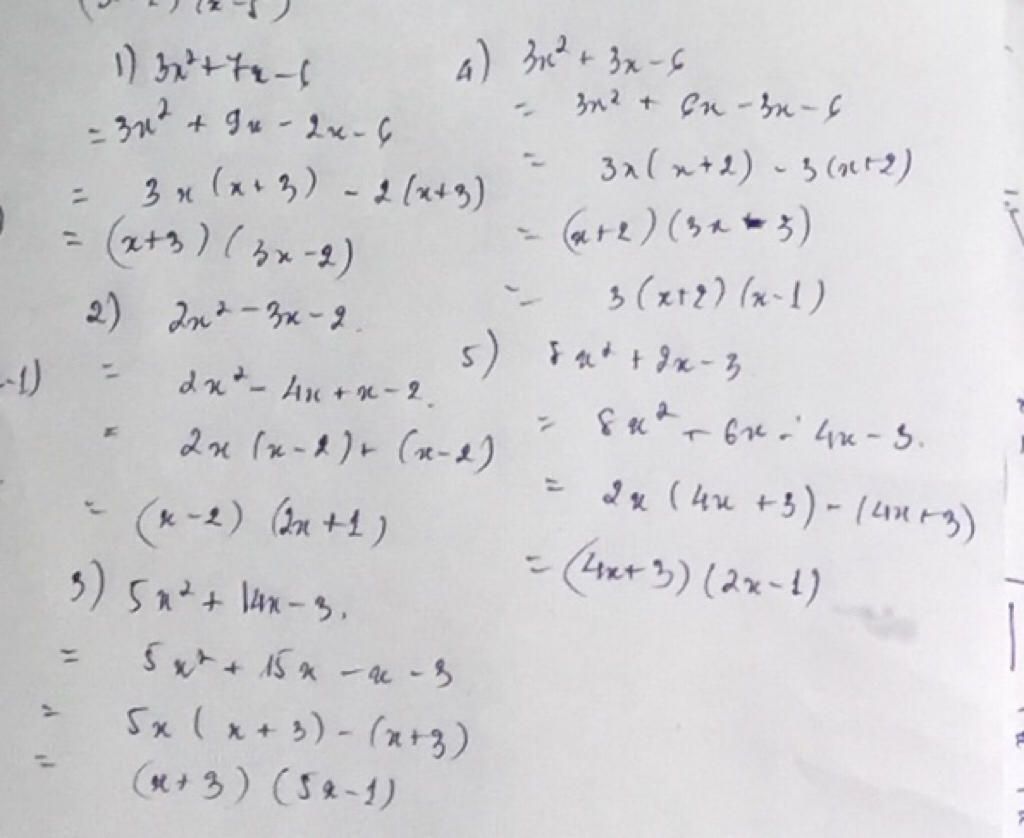 1) 3x² + 7x - 6
= 3x² + 9x - 2x - 6
= 3x (x + 3) - 2 (x+3)
= (x+3) (3x - 2)
2) 2x² - 3x - 2.
= 2x² - 4x + x - 2.
= 2x (x - 2) + (x - 2)
= (x - 2) (2x + 1)
3) 5x² + 14x - 3.
= 5x² + 15x - x - 3
= 5x (x + 3) - (x+3)
= (x + 3) (5x - 1)
4) 3x² + 3x - 6
= 3x² + 6x - 3x - 6
= 3x (x+2) - 3 (x+2)
= (x+2) (3x - 3)
= 3 (x+2) (x-1)
5) 8x² + 2x - 3
= 8x² - 6x - 4x - 3.
= 2x (4x + 3) - (4x+3)
= (4x+3) (2x-1)
-1)